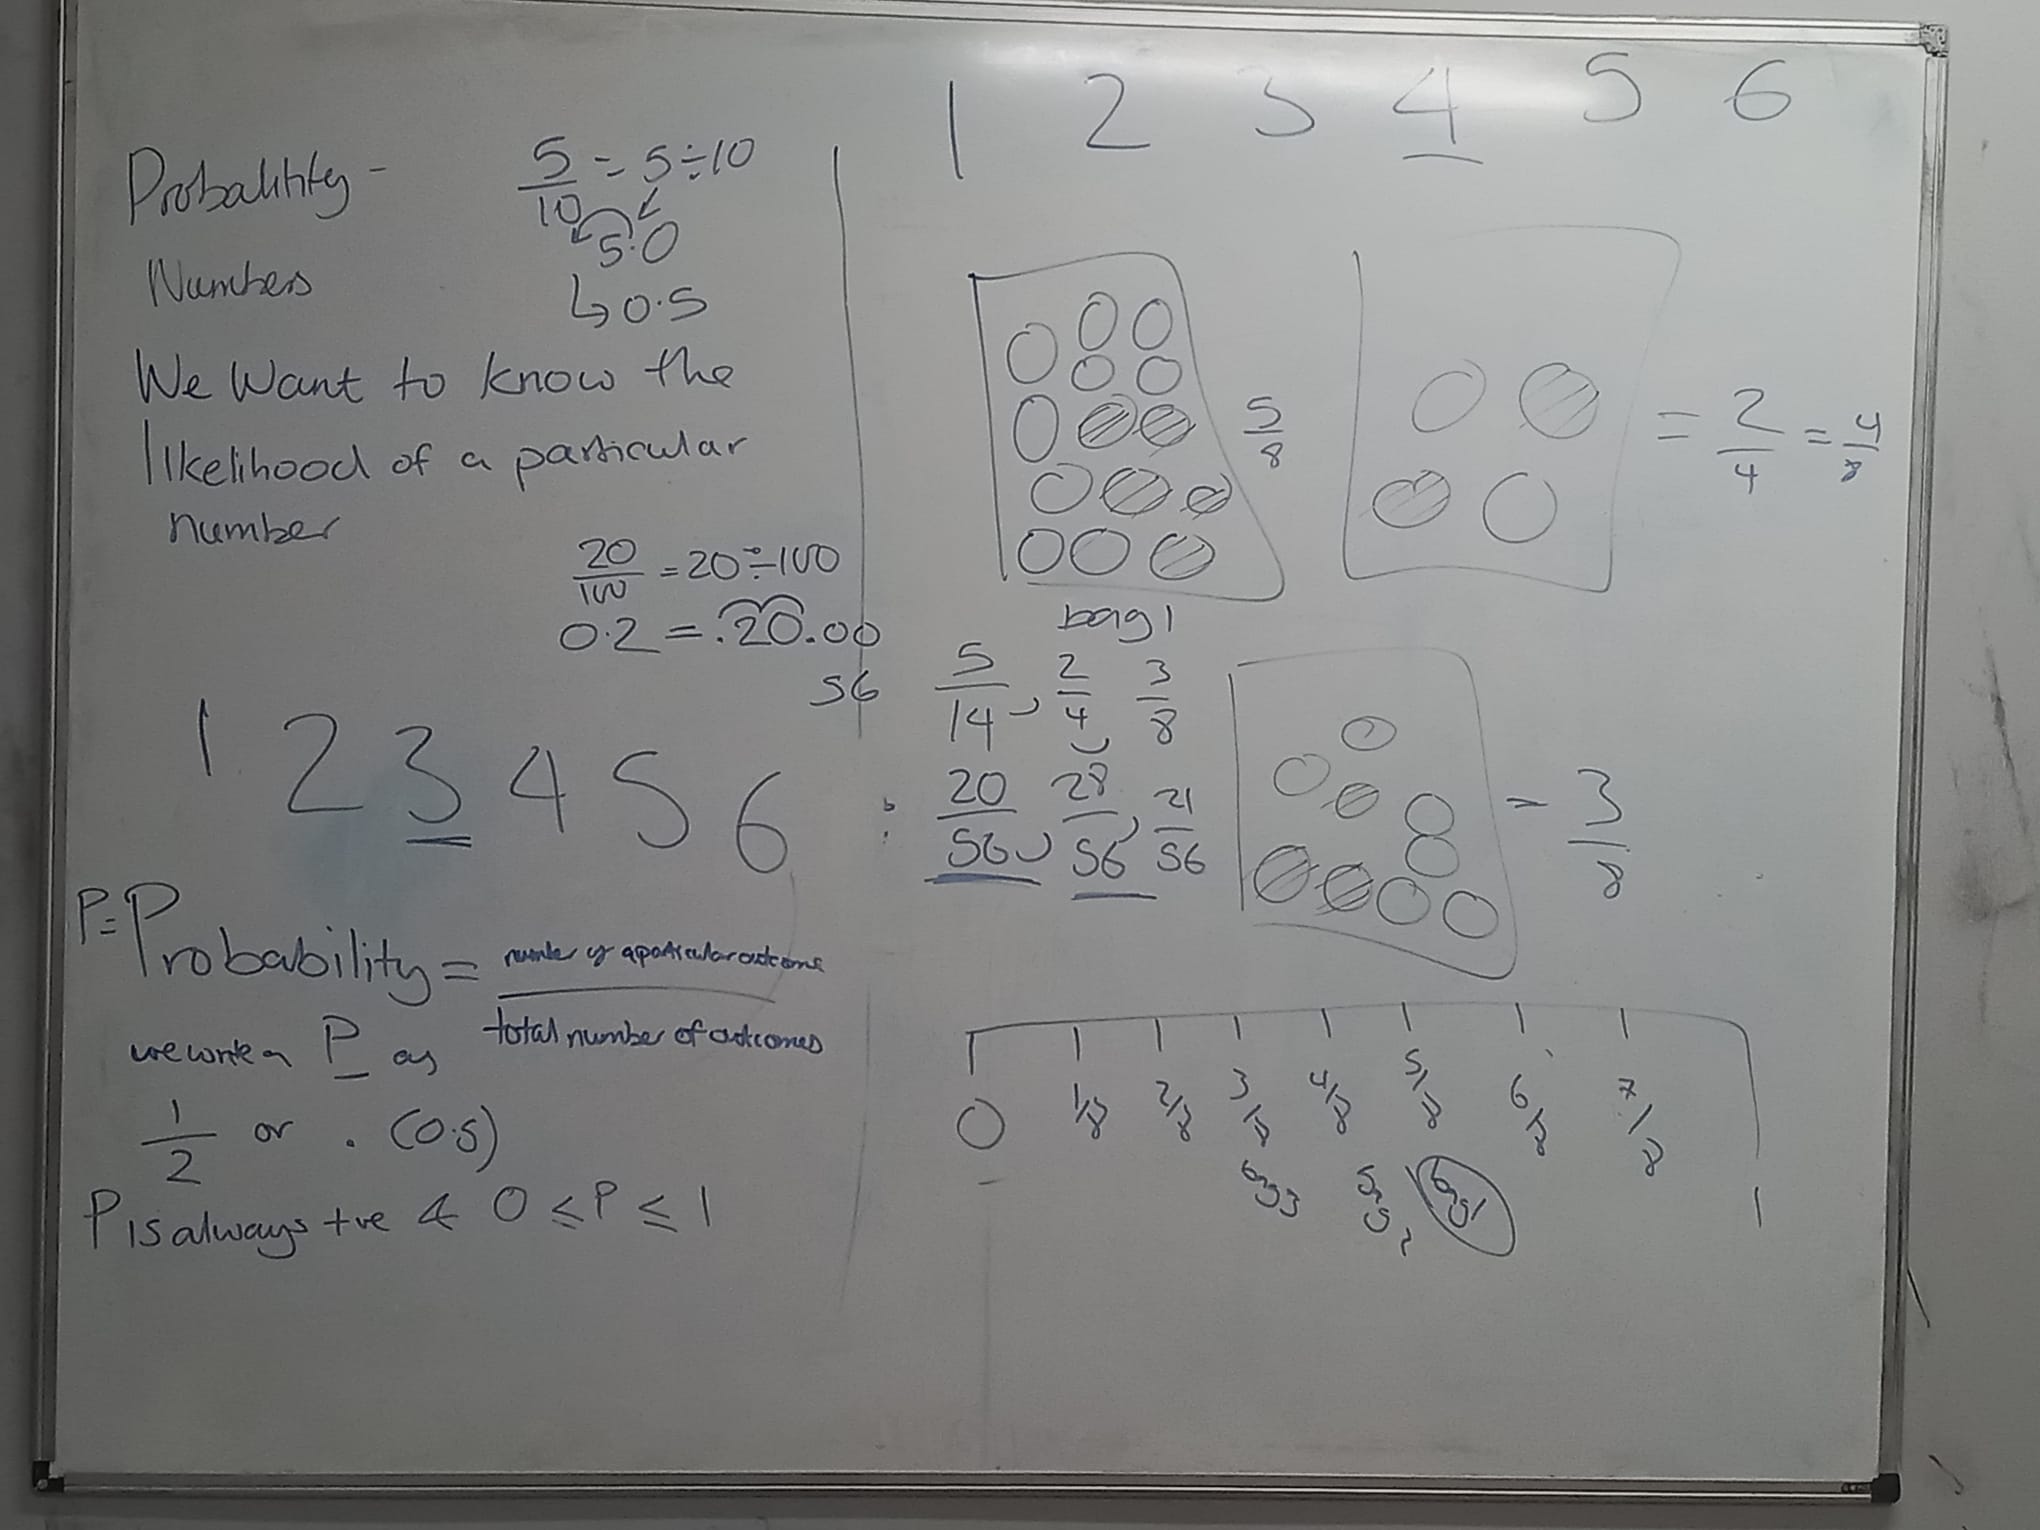 Probability -
5/10 = 5÷10
5.0
↳0.5
Numbers
We Want to know the
likelihood of a particular
number
20/100 = 20÷100
0.2 = .20.00
56
1 2 3 4 5 6
P=Probability = number of a particular outcome / total number of outcomes
we write a P as
1/2 or . (0.5)
P is always +ve & 0 ≤ P ≤ 1
1 2 3 4 5 6
5/8
= 2/4 = 4/8
bag 1
5/14, 2/4, 3/8
: 20/56, 28/56, 21/56
= 3/8
0 1/8 2/8 3/8 4/8 5/8 6/8 7/8 1
bag 3 bag 2 bag 1